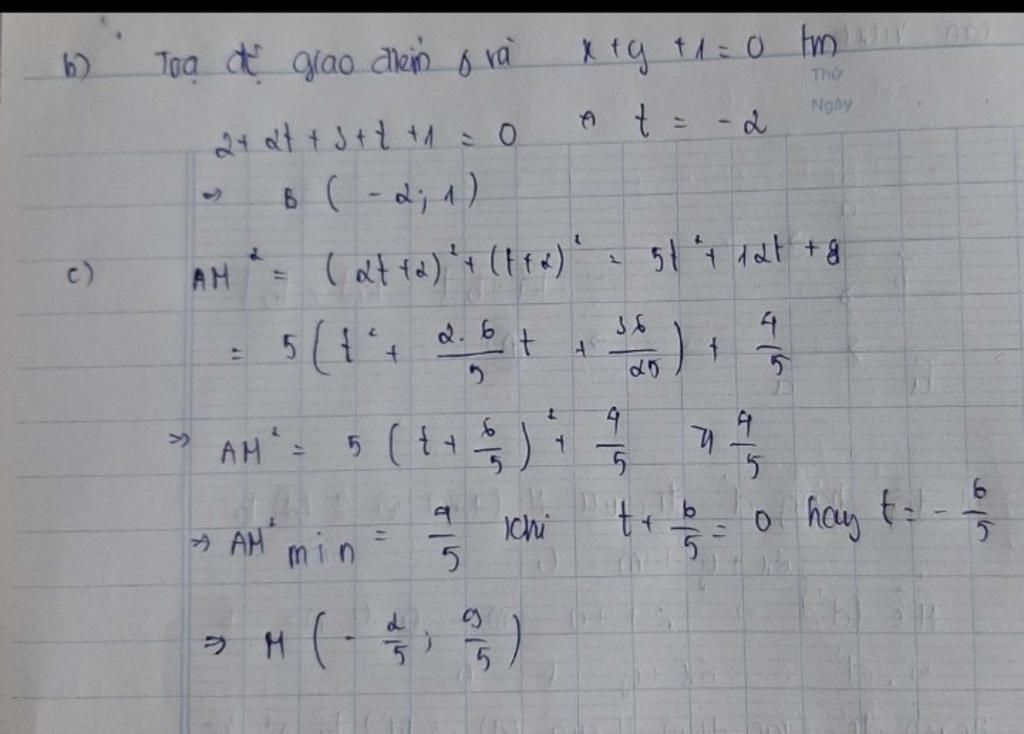 b) Toạ độ giao điểm Δ và x + y + 1 = 0 tm
Thứ
Ngày
2 + 2t + 3 + t + 1 = 0 ⇔ t = -2
⇒ B ( -2 ; 1 )
c) AM² = (2t + 2)² + (t + 2)² = 5t² + 12t + 8
= 5 ( t² + \frac{2.6}{5} t + \frac{36}{25} ) + \frac{4}{5}
⇒ AM² = 5 ( t + \frac{6}{5} )² + \frac{4}{5} ≥ \frac{4}{5}
⇒ AM² min = \frac{4}{5} khi t + \frac{6}{5} = 0 hay t = - \frac{6}{5}
⇒ M ( - \frac{2}{5} ; \frac{9}{5} )